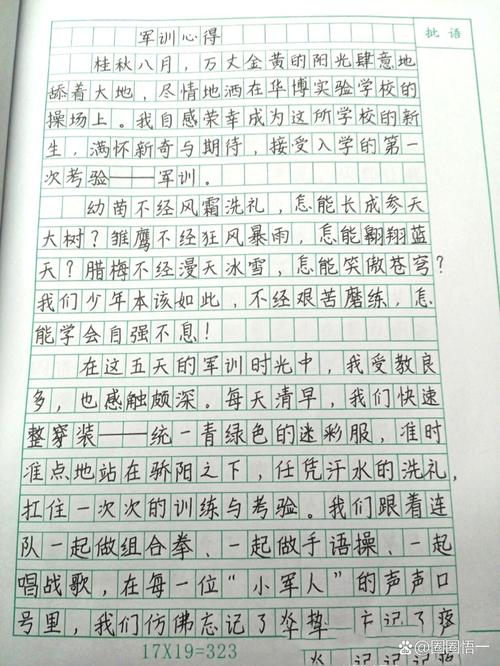 军训心得
批语
桂秋八月，万丈金黄的阳光肆意地
舔着大地，尽情地洒在华博实验学校的
操场上。我自感荣幸成为这所学校的新
生，满怀新奇与期待，接受入学的第一
次考验——军训。
幼苗不经风霜洗礼，怎能长成参天
大树？雏鹰不经狂风暴雨，怎能翱翔蓝
天？腊梅不经漫天冰雪，怎能笑傲苍穹？
我们少年本该如此，不经艰苦磨练，怎
能学会自强不息！
在这五天的军训时光中，我受教良
多，也感触颇深。每天清早，我们快速
整穿装——统一青绿色的迷彩服，准时
准点地站在骄阳之下，任凭汗水的洗礼，
扛住一次次的训练与考验。我们跟着连
队一起做组合拳、一起做手语操、一起
唱战歌，在每一位“小军人”的声声口
号里，我们仿佛忘记了
17X19=323
@圈圈悟一